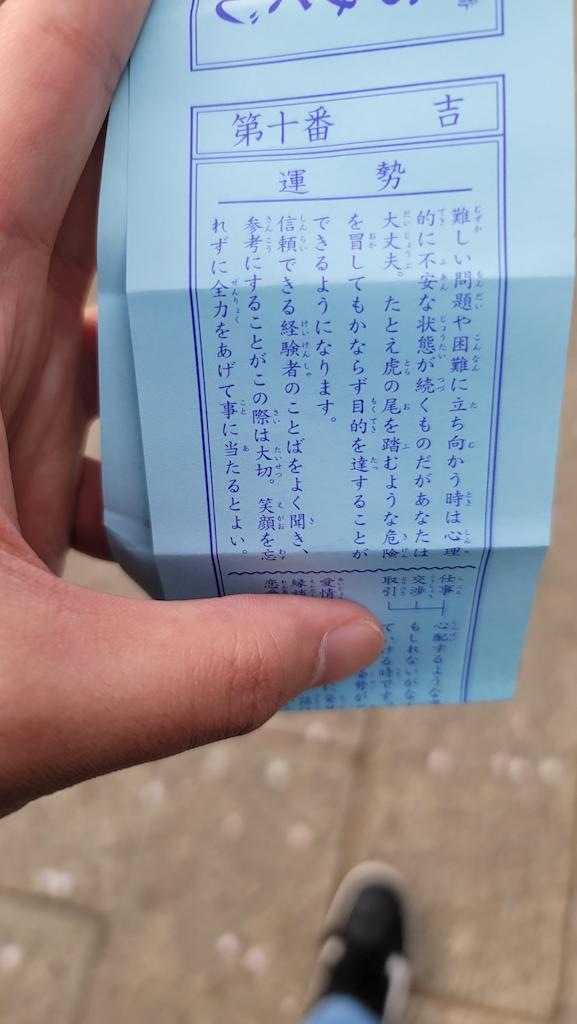 第十番 吉
運勢
難しい問題や困難に立ち向かう時は心理
的に不安な状態が続くものだがあなたは
大丈夫。たとえ虎の尾を踏むような危険
を冒してもかならず目的を達することが
できるようになります。
信頼できる経験者のことばをよく聞き、
参考にすることがこの際は大切。笑顔を忘
れずに全力をあげて事に当たるとよい。
仕事
交渉
取引
心配するような
もしれないがな
愛情